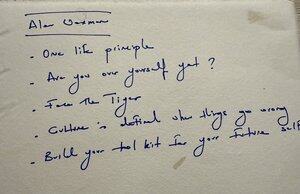 Alan Waxman
- One life principle
- Are you over yourself yet?
- Face the Tiger
- Culture is defined when things go wrong
- Build your tool kit for your future self